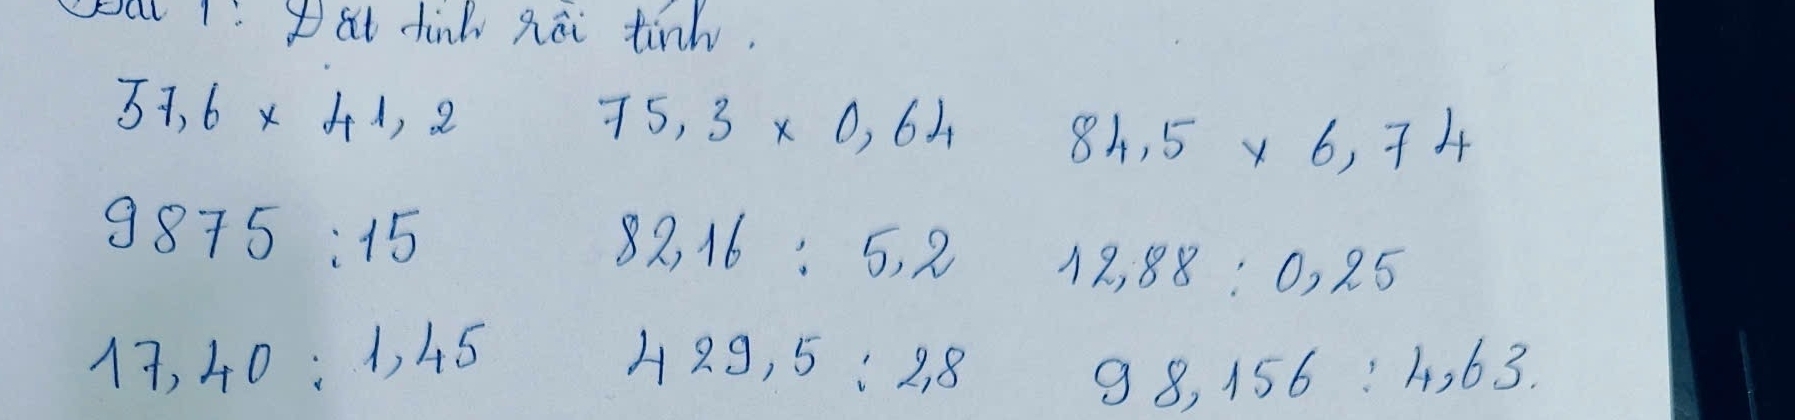 Bài 1: Đặt tính rồi tính.
37,6 x 41,2 75,3 x 0,64 84,5 x 6,74
9875 : 15 82,16 : 5,2 12,88 : 0,25
17,40 : 1,45 429,5 : 2,8 98,156 : 4,63.